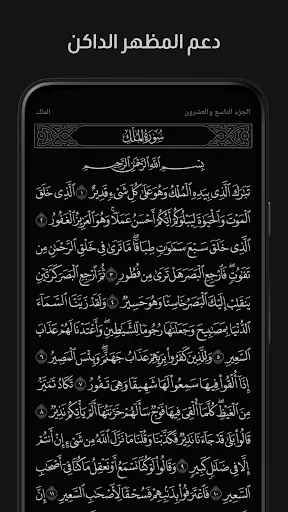 دعم المظهر الداكن
الجزء التاسع والعشرون
الملك
سُورَةُ المُلْكِ
بِسْمِ ٱللَّهِ ٱلرَّحْمَٰنِ ٱلرَّحِيمِ
تَبَٰرَكَ ٱلَّذِى بِيَدِهِ ٱلْمُلْكُ وَهُوَ عَلَىٰ كُلِّ شَىْءٍ قَدِيرٌ ١ ٱلَّذِى خَلَقَ
ٱلْمَوْتَ وَٱلْحَيَوٰةَ لِيَبْلُوَكُمْ أَيُّكُمْ أَحْسَنُ عَمَلًا ۚ وَهُوَ ٱلْعَزِيزُ ٱلْغَفُورُ ٢
ٱلَّذِى خَلَقَ سَبْعَ سَمَٰوَٰتٍ طِبَاقًا ۖ مَّا تَرَىٰ فِى خَلْقِ ٱلرَّحْمَٰنِ مِن
تَفَٰوُتٍ ۖ فَٱرْجِعِ ٱلْبَصَرَ هَلْ تَرَىٰ مِن فُطُورٍ ٣ ثُمَّ ٱرْجِعِ ٱلْبَصَرَ كَرَّتَيْنِ
يَنقَلِبْ إِلَيْكَ ٱلْبَصَرُ خَاسِئًا وَهُوَ حَسِيرٌ ٤ وَلَقَدْ زَيَّنَّا ٱلسَّمَآءَ
ٱلدُّنْيَا بِمَصَٰبِيحَ وَجَعَلْنَٰهَا رُجُومًا لِّلشَّيَٰطِينِ ۖ وَأَعْتَدْنَا لَهُمْ عَذَابَ
ٱلسَّعِيرِ ٥ وَلِلَّذِينَ كَفَرُوا۟ بِرَبِّهِمْ عَذَابُ جَهَنَّمَ ۖ وَبِئْسَ ٱلْمَصِيرُ ٦
إِذَآ أُلْقُوا۟ فِيهَا سَمِعُوا۟ لَهَا شَهِيقًا وَهِىَ تَفُورُ ٧ تَكَادُ تَمَيَّزُ
مِنَ ٱلْغَيْظِ ۖ كُلَّمَآ أُلْقِىَ فِيهَا فَوْجٌ سَأَلَهُمْ خَزَنَتُهَآ أَلَمْ يَأْتِكُمْ نَذِيرٌ ٨
قَالُوا۟ بَلَىٰ قَدْ جَآءَنَا نَذِيرٌ فَكَذَّبْنَا وَقُلْنَا مَا نَزَّلَ ٱللَّهُ مِن شَىْءٍ إِنْ أَنتُمْ
إِلَّا فِى ضَلَٰلٍ كَبِيرٍ ٩ وَقَالُوا۟ لَوْ كُنَّا نَسْمَعُ أَوْ نَعْقِلُ مَا كُنَّا فِىٓ أَصْحَٰبِ
ٱلسَّعِيرِ ١٠ فَٱعْتَرَفُوا۟ بِذَنۢبِهِمْ فَسُحْقًا لِّأَصْحَٰبِ ٱلسَّعِيرِ ١١